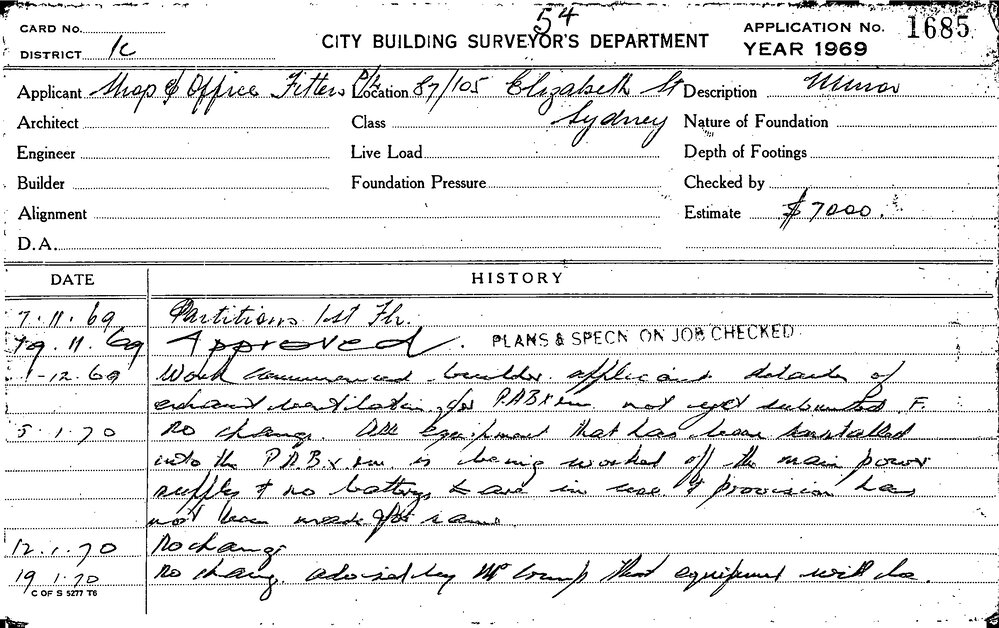 54
CARD No.
DISTRICT
CITY BUILDING SURVEYOR'S DEPARTMENT
APPLICATION No. 1685
YEAR 1969
Applicant Shop & Office Fitters P/L Location 87/105 Elizabeth St Description Minor
Architect Class Sydney Nature of Foundation
Engineer Live Load Depth of Footings
Builder Foundation Pressure Checked by
Alignment Estimate $7000.
D.A.
DATE HISTORY
7.11.69 Partitions 1st Flr.
19.11.69 Approved. PLANS & SPECN ON JOB CHECKED
1-12.69 Work commenced builder applicant details of
exhaust ventilation for P.A.B.X rm not yet submitted F.
5.1.70 No change. All equipment that has been installed
into the P.A.B.X. rm is being worked off the main power
supply & no battery are in use & provision has
not been made for same.
12.1.70 No change
19 1.70 No change. advised by Mr that equipment will be.
C OF S 5277 T6